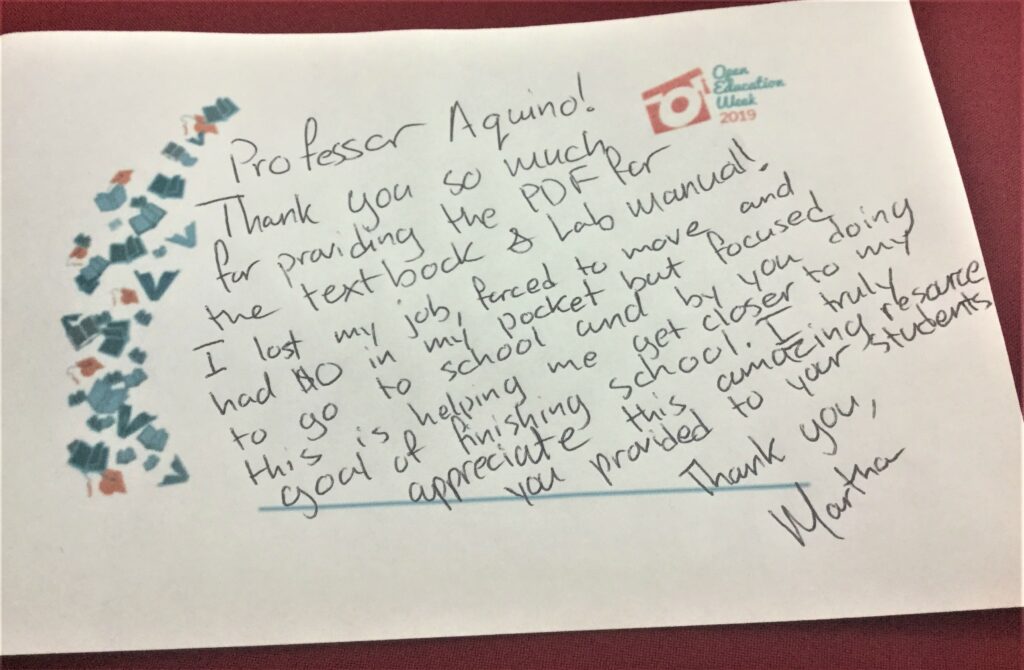 Open
Education
Week
2019
Professor Aquino!
Thank you so much
for providing the PDF for
the textbook & Lab Manual!
I lost my job, forced to move and
had $0 in my pocket but focused
to go to school and by you doing
this is helping me get closer to my
goal of finishing school. I truly
appreciate this amazing resource
you provided to your students
Thank you,
Martha